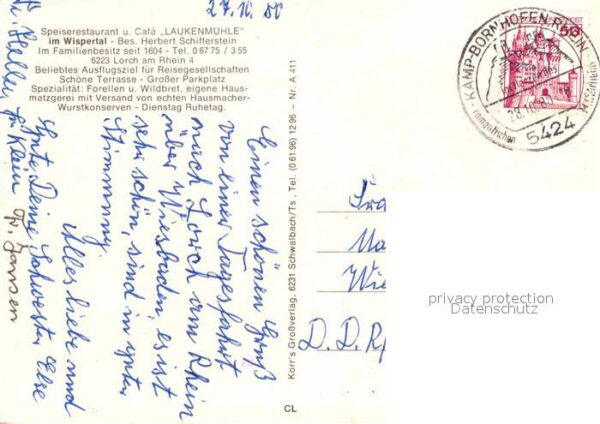 27.10.80
Speiserestaurant u. Café „LAUKENMÜHLE"
im Wispertal - Bes. Herbert Schifferstein
Im Familienbesitz seit 1604 - Tel. 06775 / 355
6223 Lorch am Rhein 4
Beliebtes Ausflugsziel für Reisegesellschaften
Schöne Terrasse - Großer Parkplatz
Spezialität: Forellen u. Wildbret, eigene Haus-
metzgerei mit Versand von echten Hausmacher-
Wurstkonserven - Dienstag Ruhetag.
Einen schönen Gruß
von einer Tagesfahrt
nach Lorch am Rhein
über Wiesbaden, es ist
sehr schön, sind in guter
Stimmung.
Alles liebe und
Gute Deine Schwester Else
Fr. Jansen
Korr's Großverlag, 6231 Schwalbach/Ts., Tel. (0 61 96) 12 96 - Nr. A 411
CL
KAMP-BORNHOFEN, RHEIN
romantischen
5424
50
Wie
D.D.R
privacy protection
Datenschutz